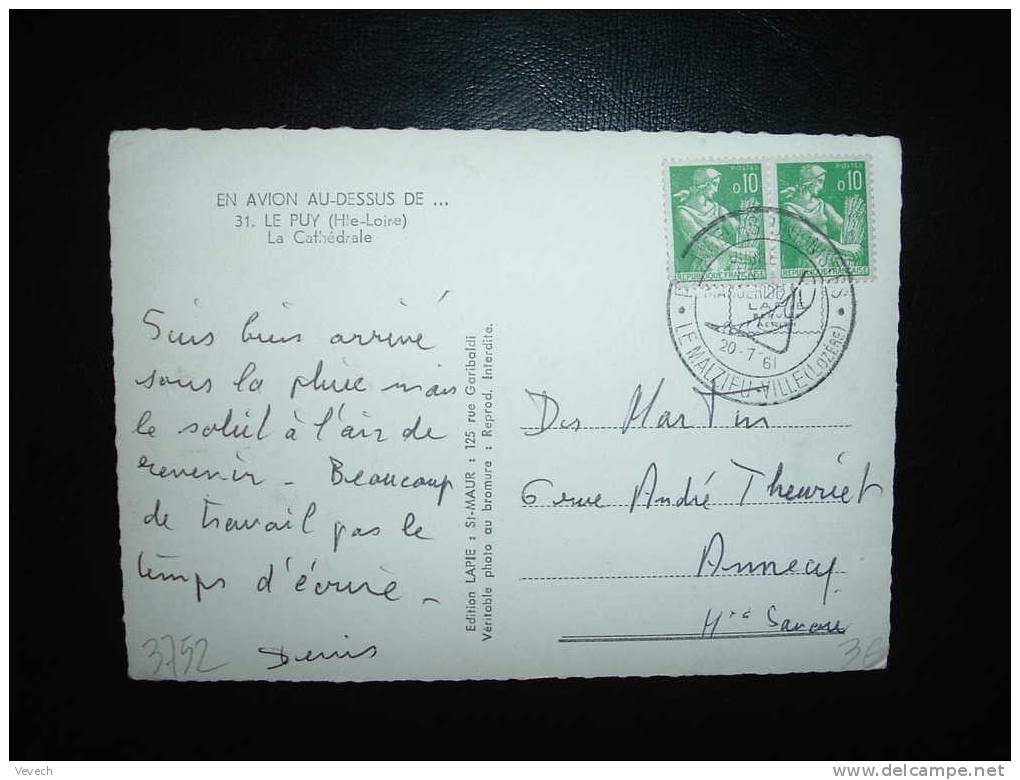 EN AVION AU-DESSUS DE ...
31. LE PUY (Hte-Loire)
La Cathédrale
Suis bien arrivé
sous la pluie mais
le soleil à l'air de
revenir - Beaucoup
de travail pas le
temps d'écrire -
Denis
3752
Edition LAPIE : St-MAUR : 125 rue Garibaldi
Véritable photo au bromure : Reprod. Interdite.
POSTES
0,10
REPUBLIQUE FRANÇAISE
POSTES
0,10
REPUBLIQUE FRANÇAISE
LAPIE
20-7-61
LE MALZIEU-VILLE (LOZÈRE)
Martin
6 rue André Theuriet
Annecy
Hte Savoie
Vevech
delcampe.net